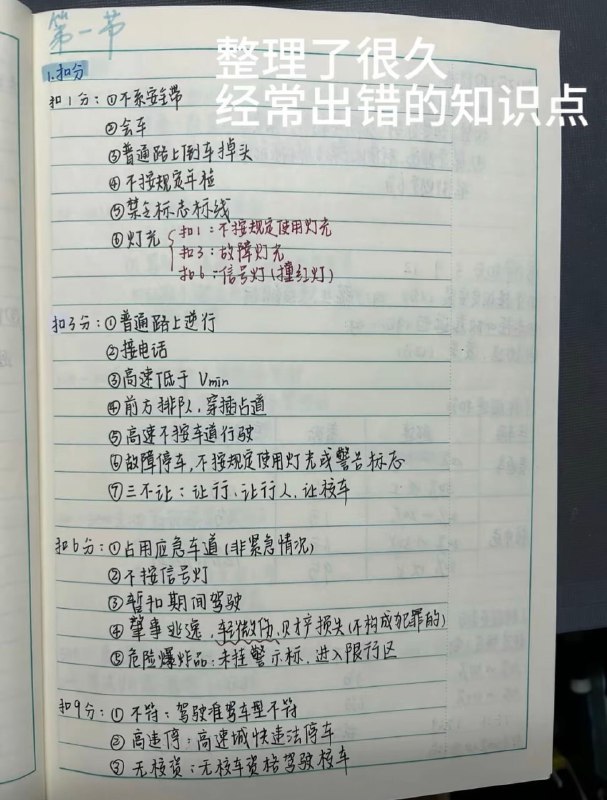 第一节
整理了很久
经常出错的知识点
1.扣分
扣1分：①不系安全带
②会车
③普通路上倒车掉头
④不按规定年检
⑤禁令标志标线
⑥灯光
扣1：不按规定使用灯光
扣3：故障灯光
扣6：信号灯(撞红灯)
扣3分：①普通路上逆行
②接电话
③高速低于Vmin
④前方排队，穿插占道
⑤高速不按车道行驶
⑥故障停车，不按规定使用灯光或警告标志
⑦三不让：让行、让行人、让校车
扣6分：①占用应急车道(非紧急情况)
②不按信号灯
③暂扣期间驾驶
④肇事逃逸，轻微伤、财产损失(不构成犯罪的)
⑤危险爆炸品：未挂警示标，进入限行区
扣9分：①不符：驾驶准驾车型不符
②高速停：高速城快违法停车
③无校资：无校车资格驾驶校车